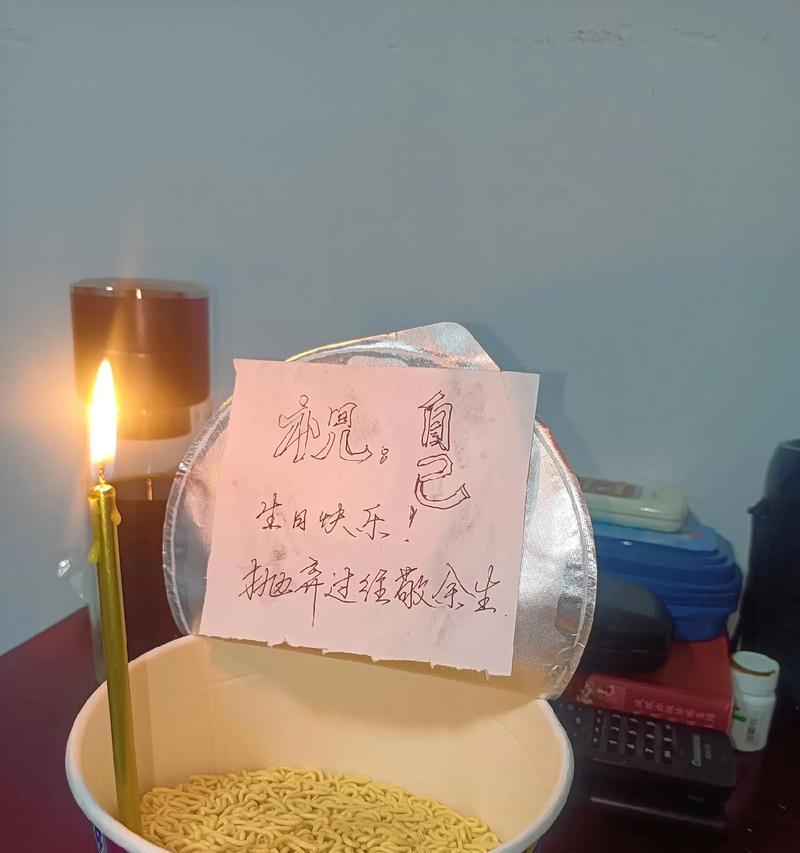 祝：自己
生日快乐！
抛弃过往敬余生.